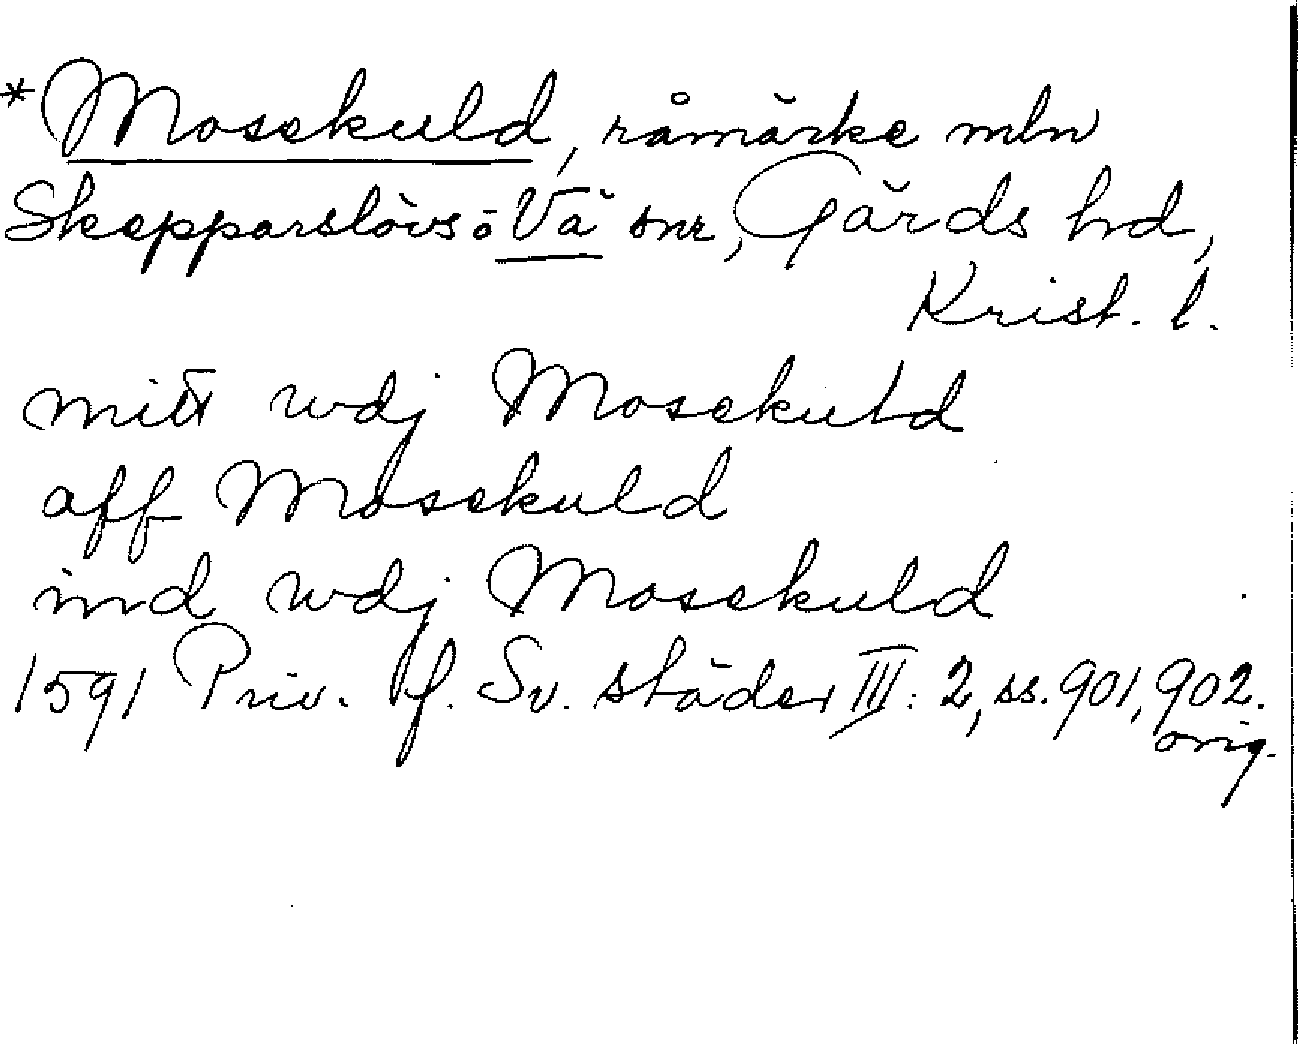 *Mosekuld, råmärke mln
Skepparslövs o Vä snr, Gärds hd,
Krist. l.
mitt wdj Mosekuld
aff Mosekuld
ind wdj Mosekuld
1591 Priv. f. Sv. städer III: 2, ss. 901, 902.
orig.